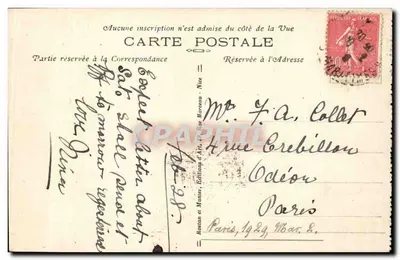 Aucune inscription n'est admise du côté de la Vue
CARTE POSTALE
Partie réservée à la Correspondance
Réservée à l'Adresse
Expect letter about
Sat. Shall send it
off to-morrow registered
Love
Nina
Feb. 28.
F. A. Collet
4 rue Crébillon
Odéon
Paris
Paris, 1929, Mar. 2.
CPAPHIL